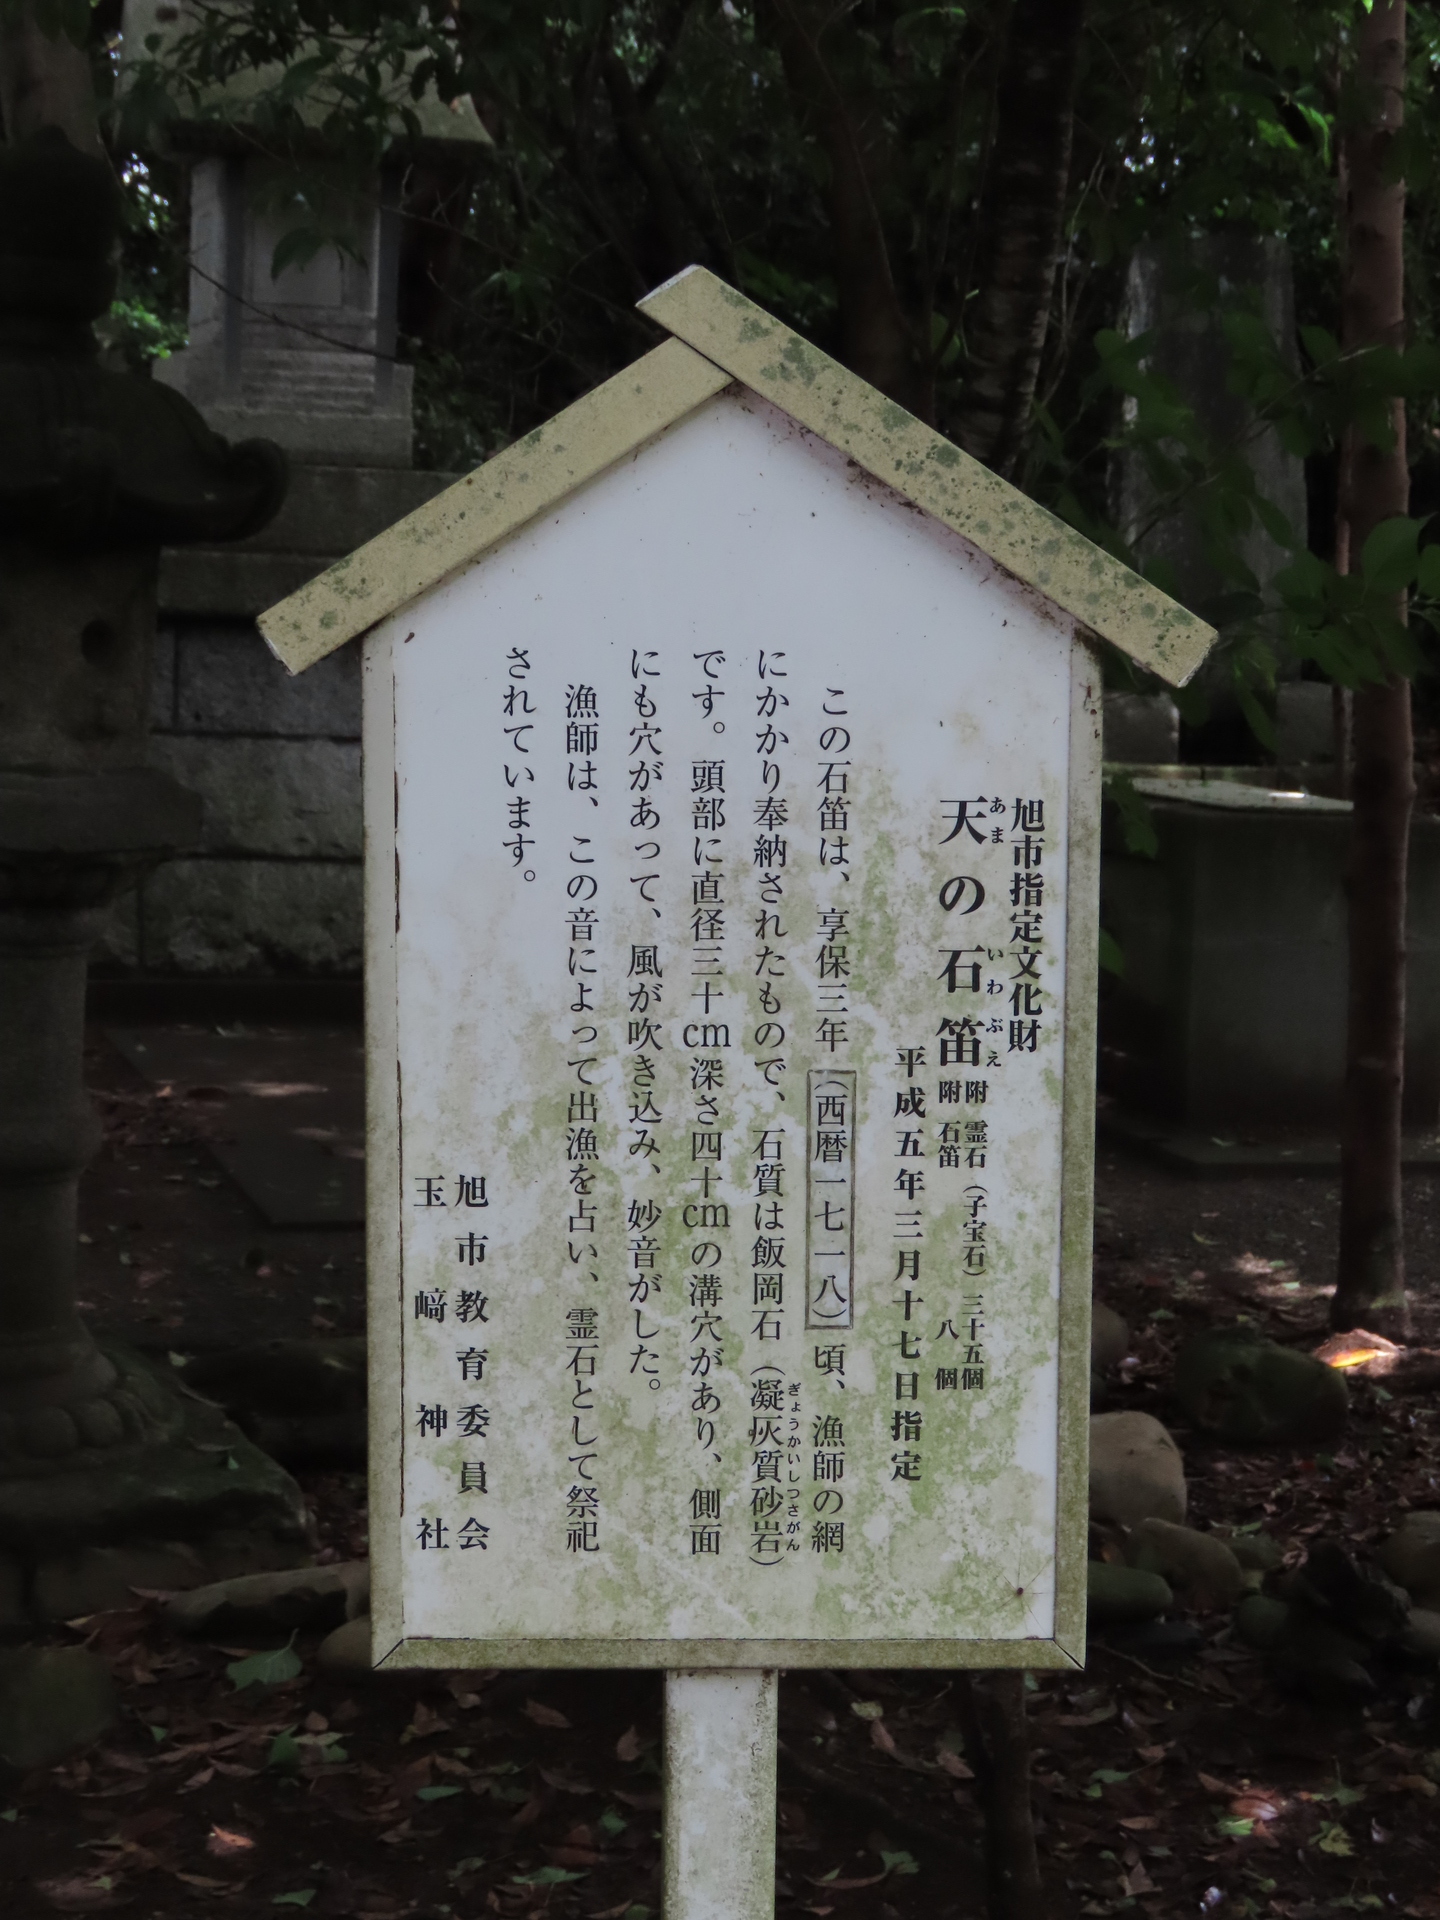 旭市指定文化財
天の石笛
あま いわぶえ
附 霊石（子宝石）三十五個
附 石笛 八個
平成五年三月十七日指定
この石笛は、享保三年（西暦一七一八）頃、漁師の網
にかかり奉納されたもので、石質は飯岡石（凝灰質砂岩）
ぎょうかいしつさがん
です。頭部に直径三十cm深さ四十cmの溝穴があり、側面
にも穴があって、風が吹き込み、妙音がした。
漁師は、この音によって出漁を占い、霊石として祭祀
されています。
旭市教育委員会
玉﨑神社